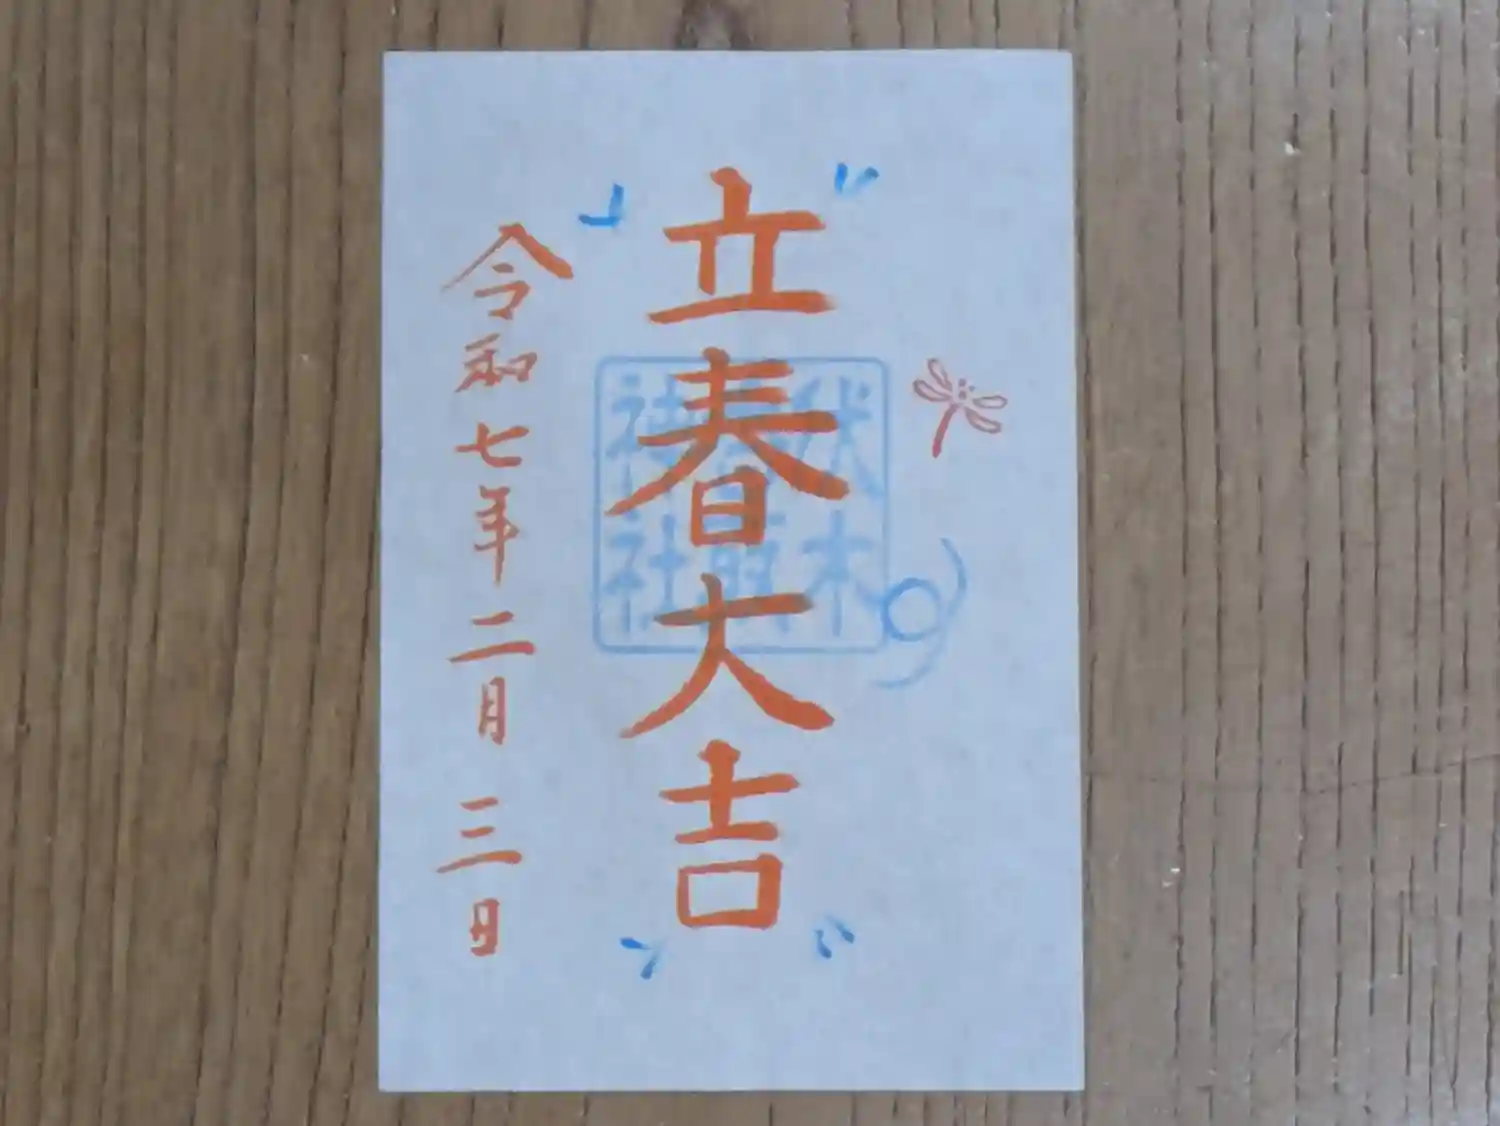 立春大吉
伏木
香取
神社
令和七年二月三日